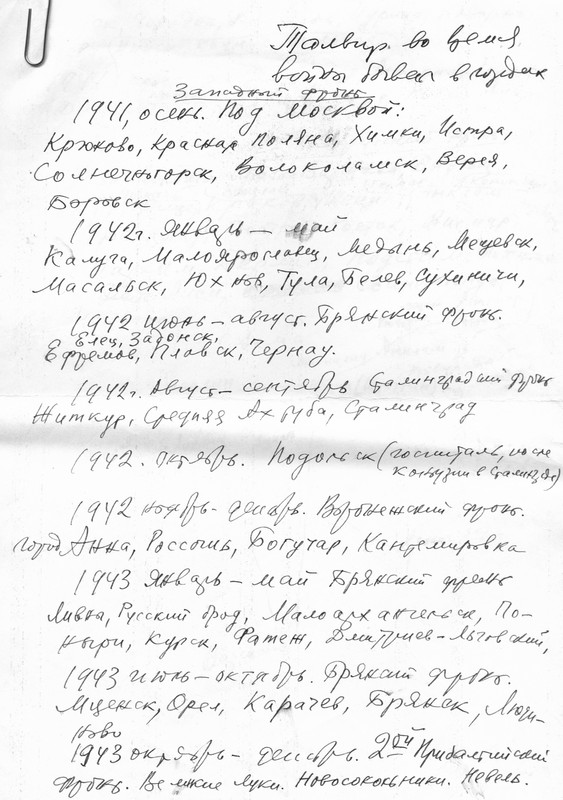 Толвир. во время
войны бывал в городах
Западный фронт
1941, осень. Под Москвой:
Крюково, Красная Поляна, Химки, Истра,
Солнечногорск, Волоколамск, Верея,
Боровск
1942г. Январь – май
Калуга, Малоярославец, Медынь, Мещевск,
Масальск, Юхнов, Тула, Белев, Сухиничи,
1942 июнь – август. Брянский фронт.
Елец, Задонск,
Ефремов, Плавск, Чернау.
1942г. Август – сентябрь Сталинградский фронт
Житкур, Средняя Ахтуба, Сталинград
1942. октябрь. Подольск (госпиталь, после
контузии в Сталинграде)
1942 ноябрь – декабрь. Воронежский фронт.
город Анна, Россошь, Богучар, Кантемировка
1943 Январь – май Брянский фронт
Ливна, Русский брод, Малоархангельск, По-
ныри, Курск, Фатеж, Дмитриев-Льговский,
1943 июль – октябрь. Брянский фронт.
Мценск, Орел, Карачев, Брянск, Люди-
ново
1943 октябрь – декабрь. 2ой Прибалтийский
фронт. Великие Луки. Новосокольники. Невель.